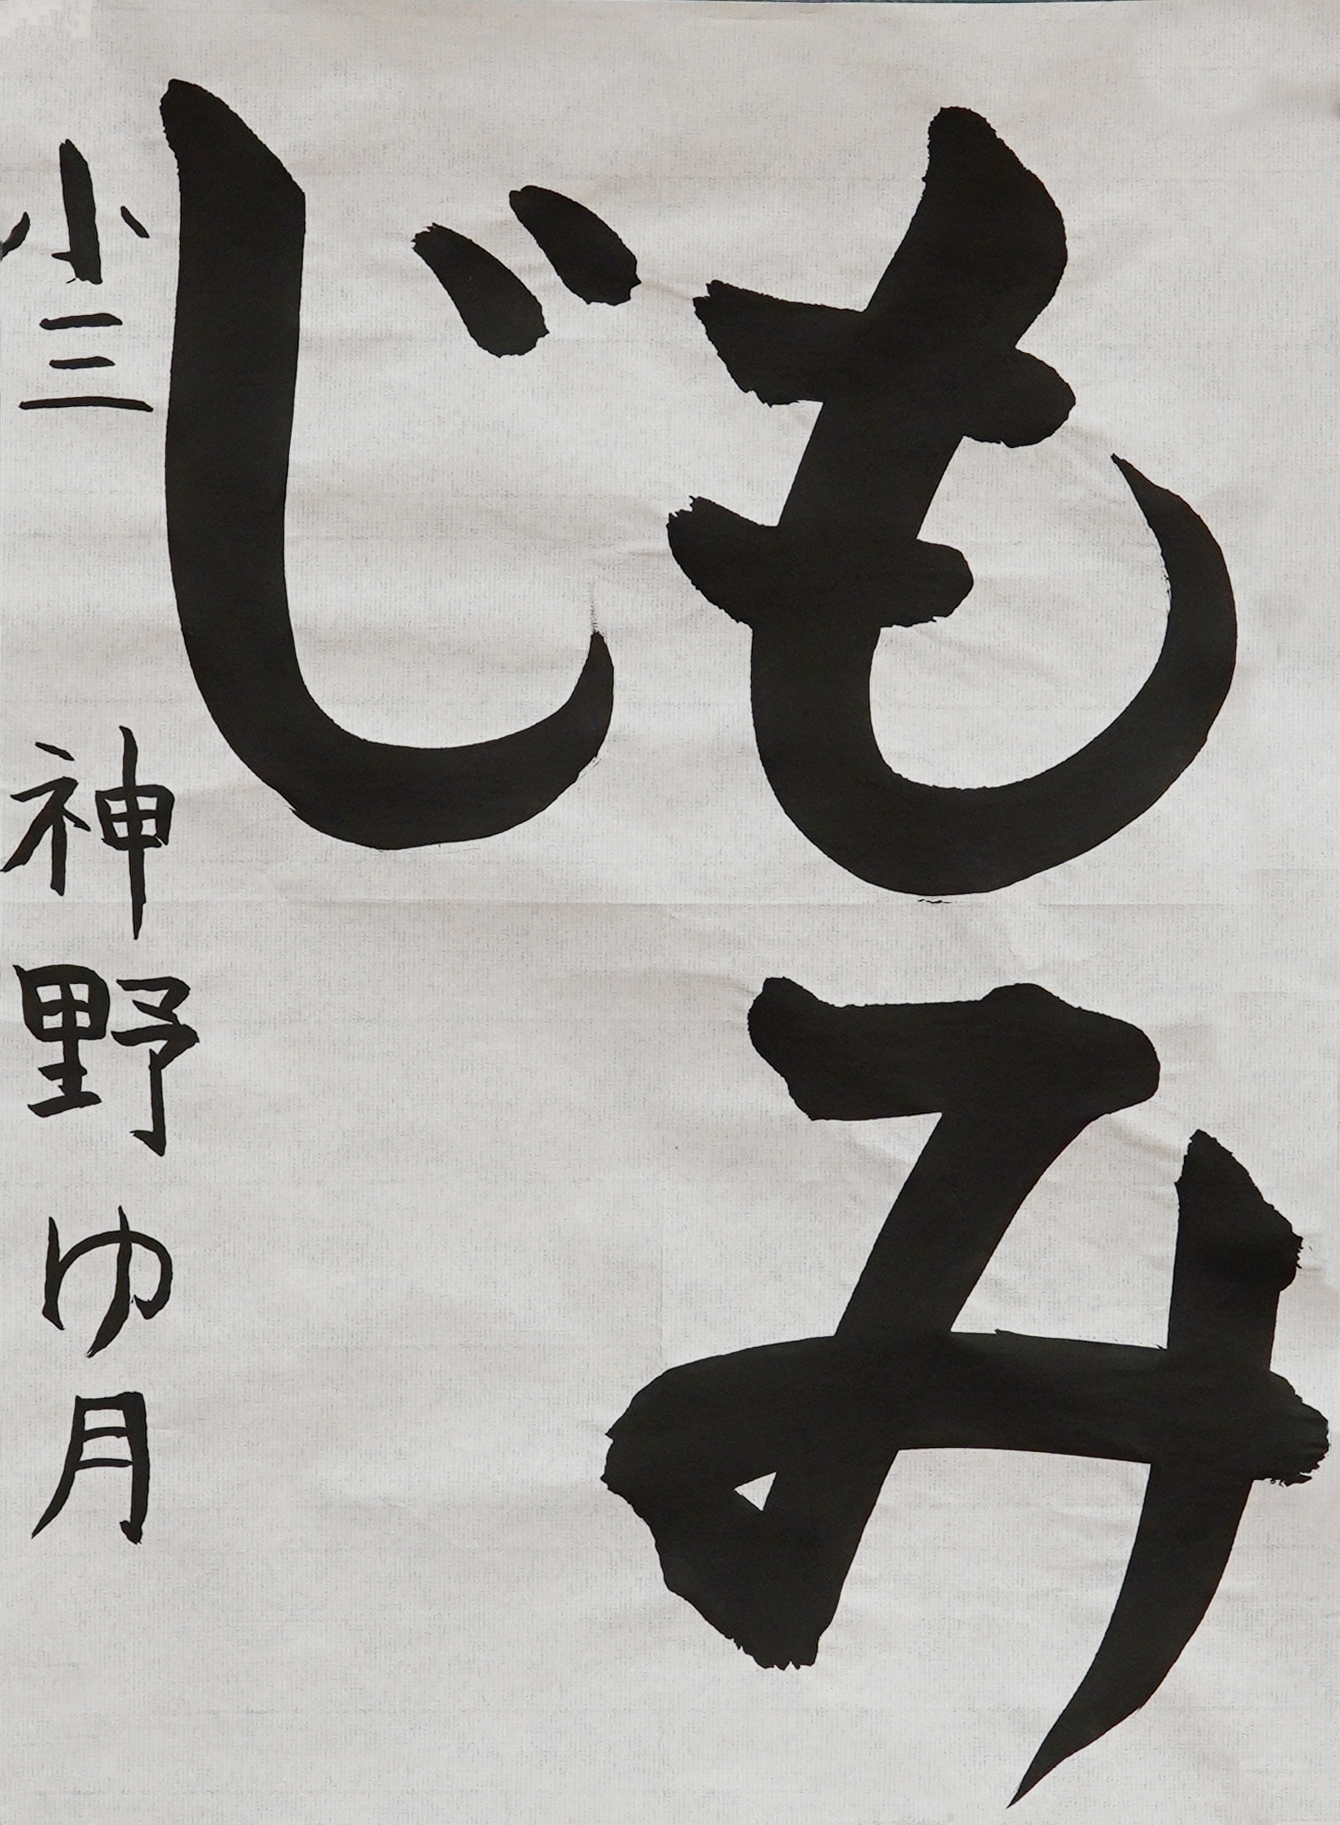 もみ
じ
小三 神野ゆ月